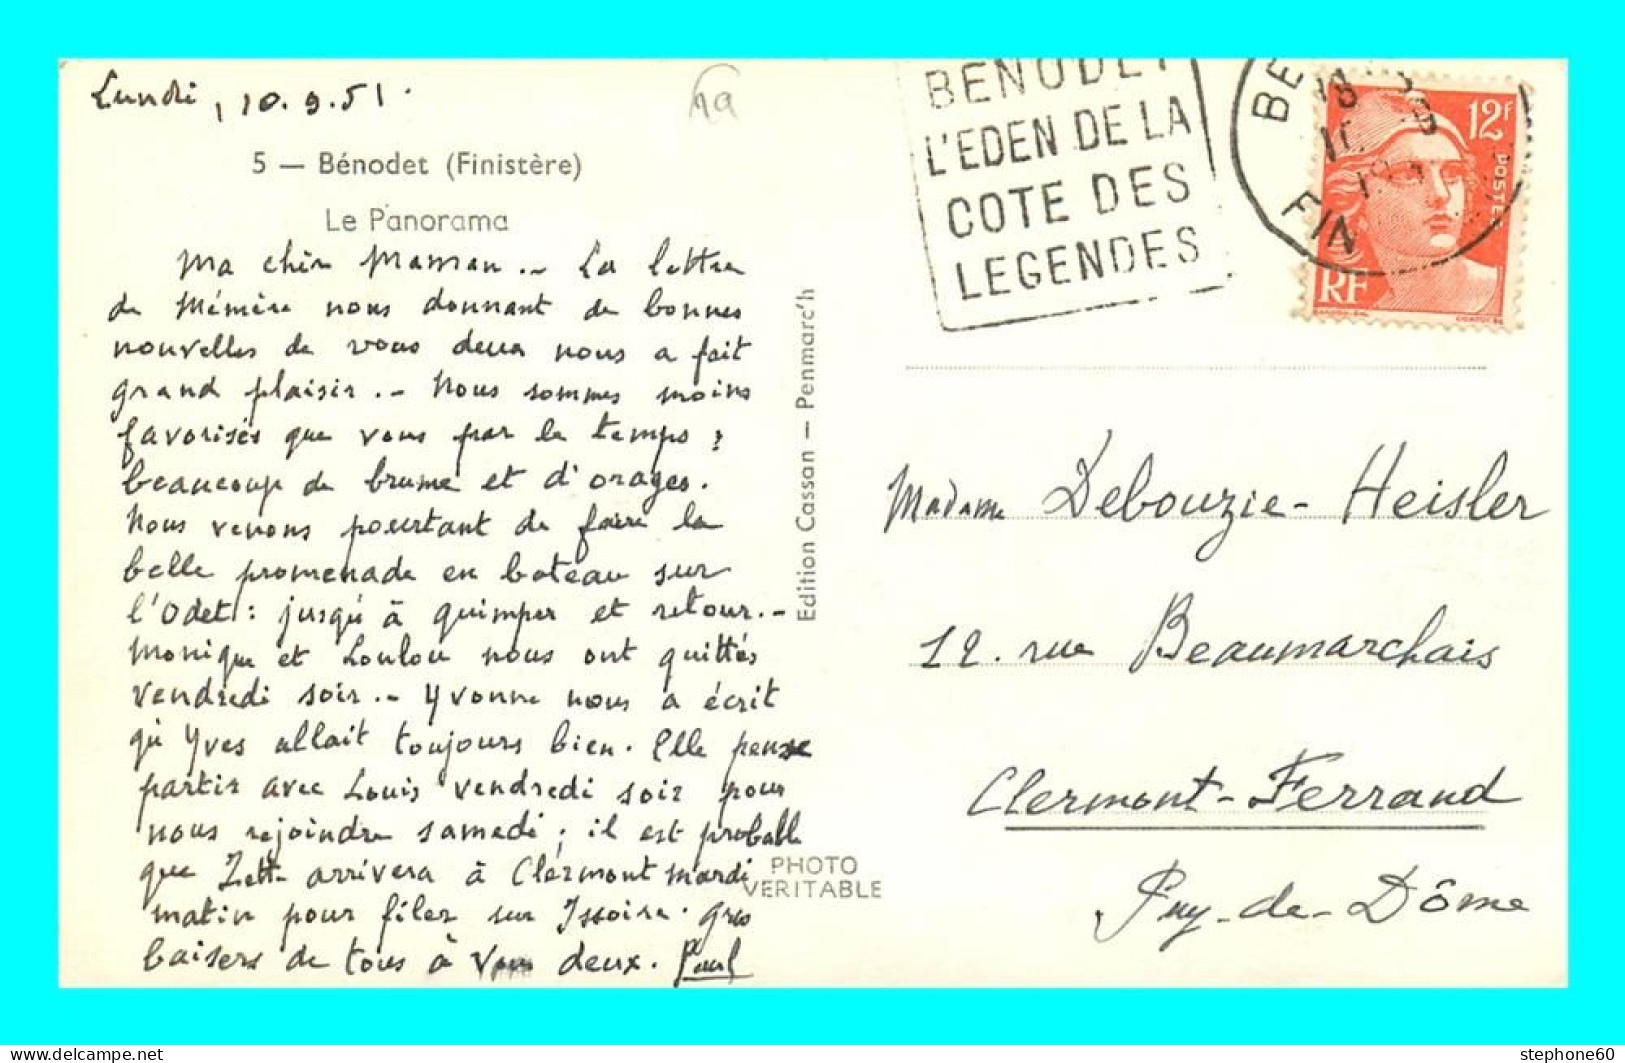 Lundi, 10.9.51.
19
5 — Bénodet (Finistère)
Le Panorama
Ma chère Maman.- La lettre
de Mémère nous donnant de bonnes
nouvelles de vous deux nous a fait
grand plaisir.- Nous sommes moins
favorisés que vous par le temps :
beaucoup de brume et d'orages.
Nous venons pourtant de faire la
belle promenade en bateau sur
l'Odet : jusqu'à Quimper et retour.-
Monique et Loulou nous ont quittés
vendredi soir.- Yvonne nous a écrit
qu'Yves allait toujours bien. Elle pense
partir avec Louis vendredi soir pour
nous rejoindre samedi ; il est probable
que Zette arrivera à Clermont mardi
matin pour filer sur Issoire. Gros
baisers de tous à vous deux. Paul
Edition Cassan — Penmarc'h
PHOTO
VERITABLE
BENODET
L'EDEN DE LA
COTE DES
LEGENDES
BE
18
FIN
12F
POSTES
RF
Madame Debouzie-Heisler
12. rue Beaumarchais
Clermont-Ferrand
Puy-de-Dôme
delcampe.net
stephone60